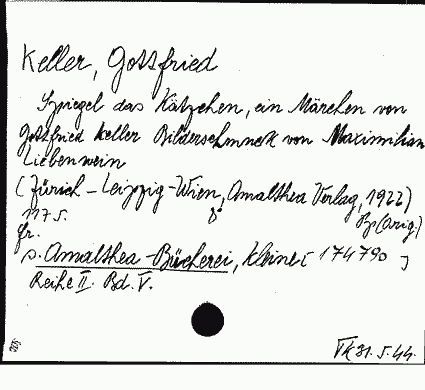 Keller, Gottfried
Spiegel das Kätzchen, ein Märchen von
Gottfried Keller Bilderschmuck von Maximilian
Liebenwein
(Zürich - Leipzig - Wien, Amalthea Verlag, 1922)
117 S. 8° Pp (orig.)
fr.
s. Amalthea-Bücherei, kleine [174790]
Reihe II. Bd. V.
VK 31.5.44.